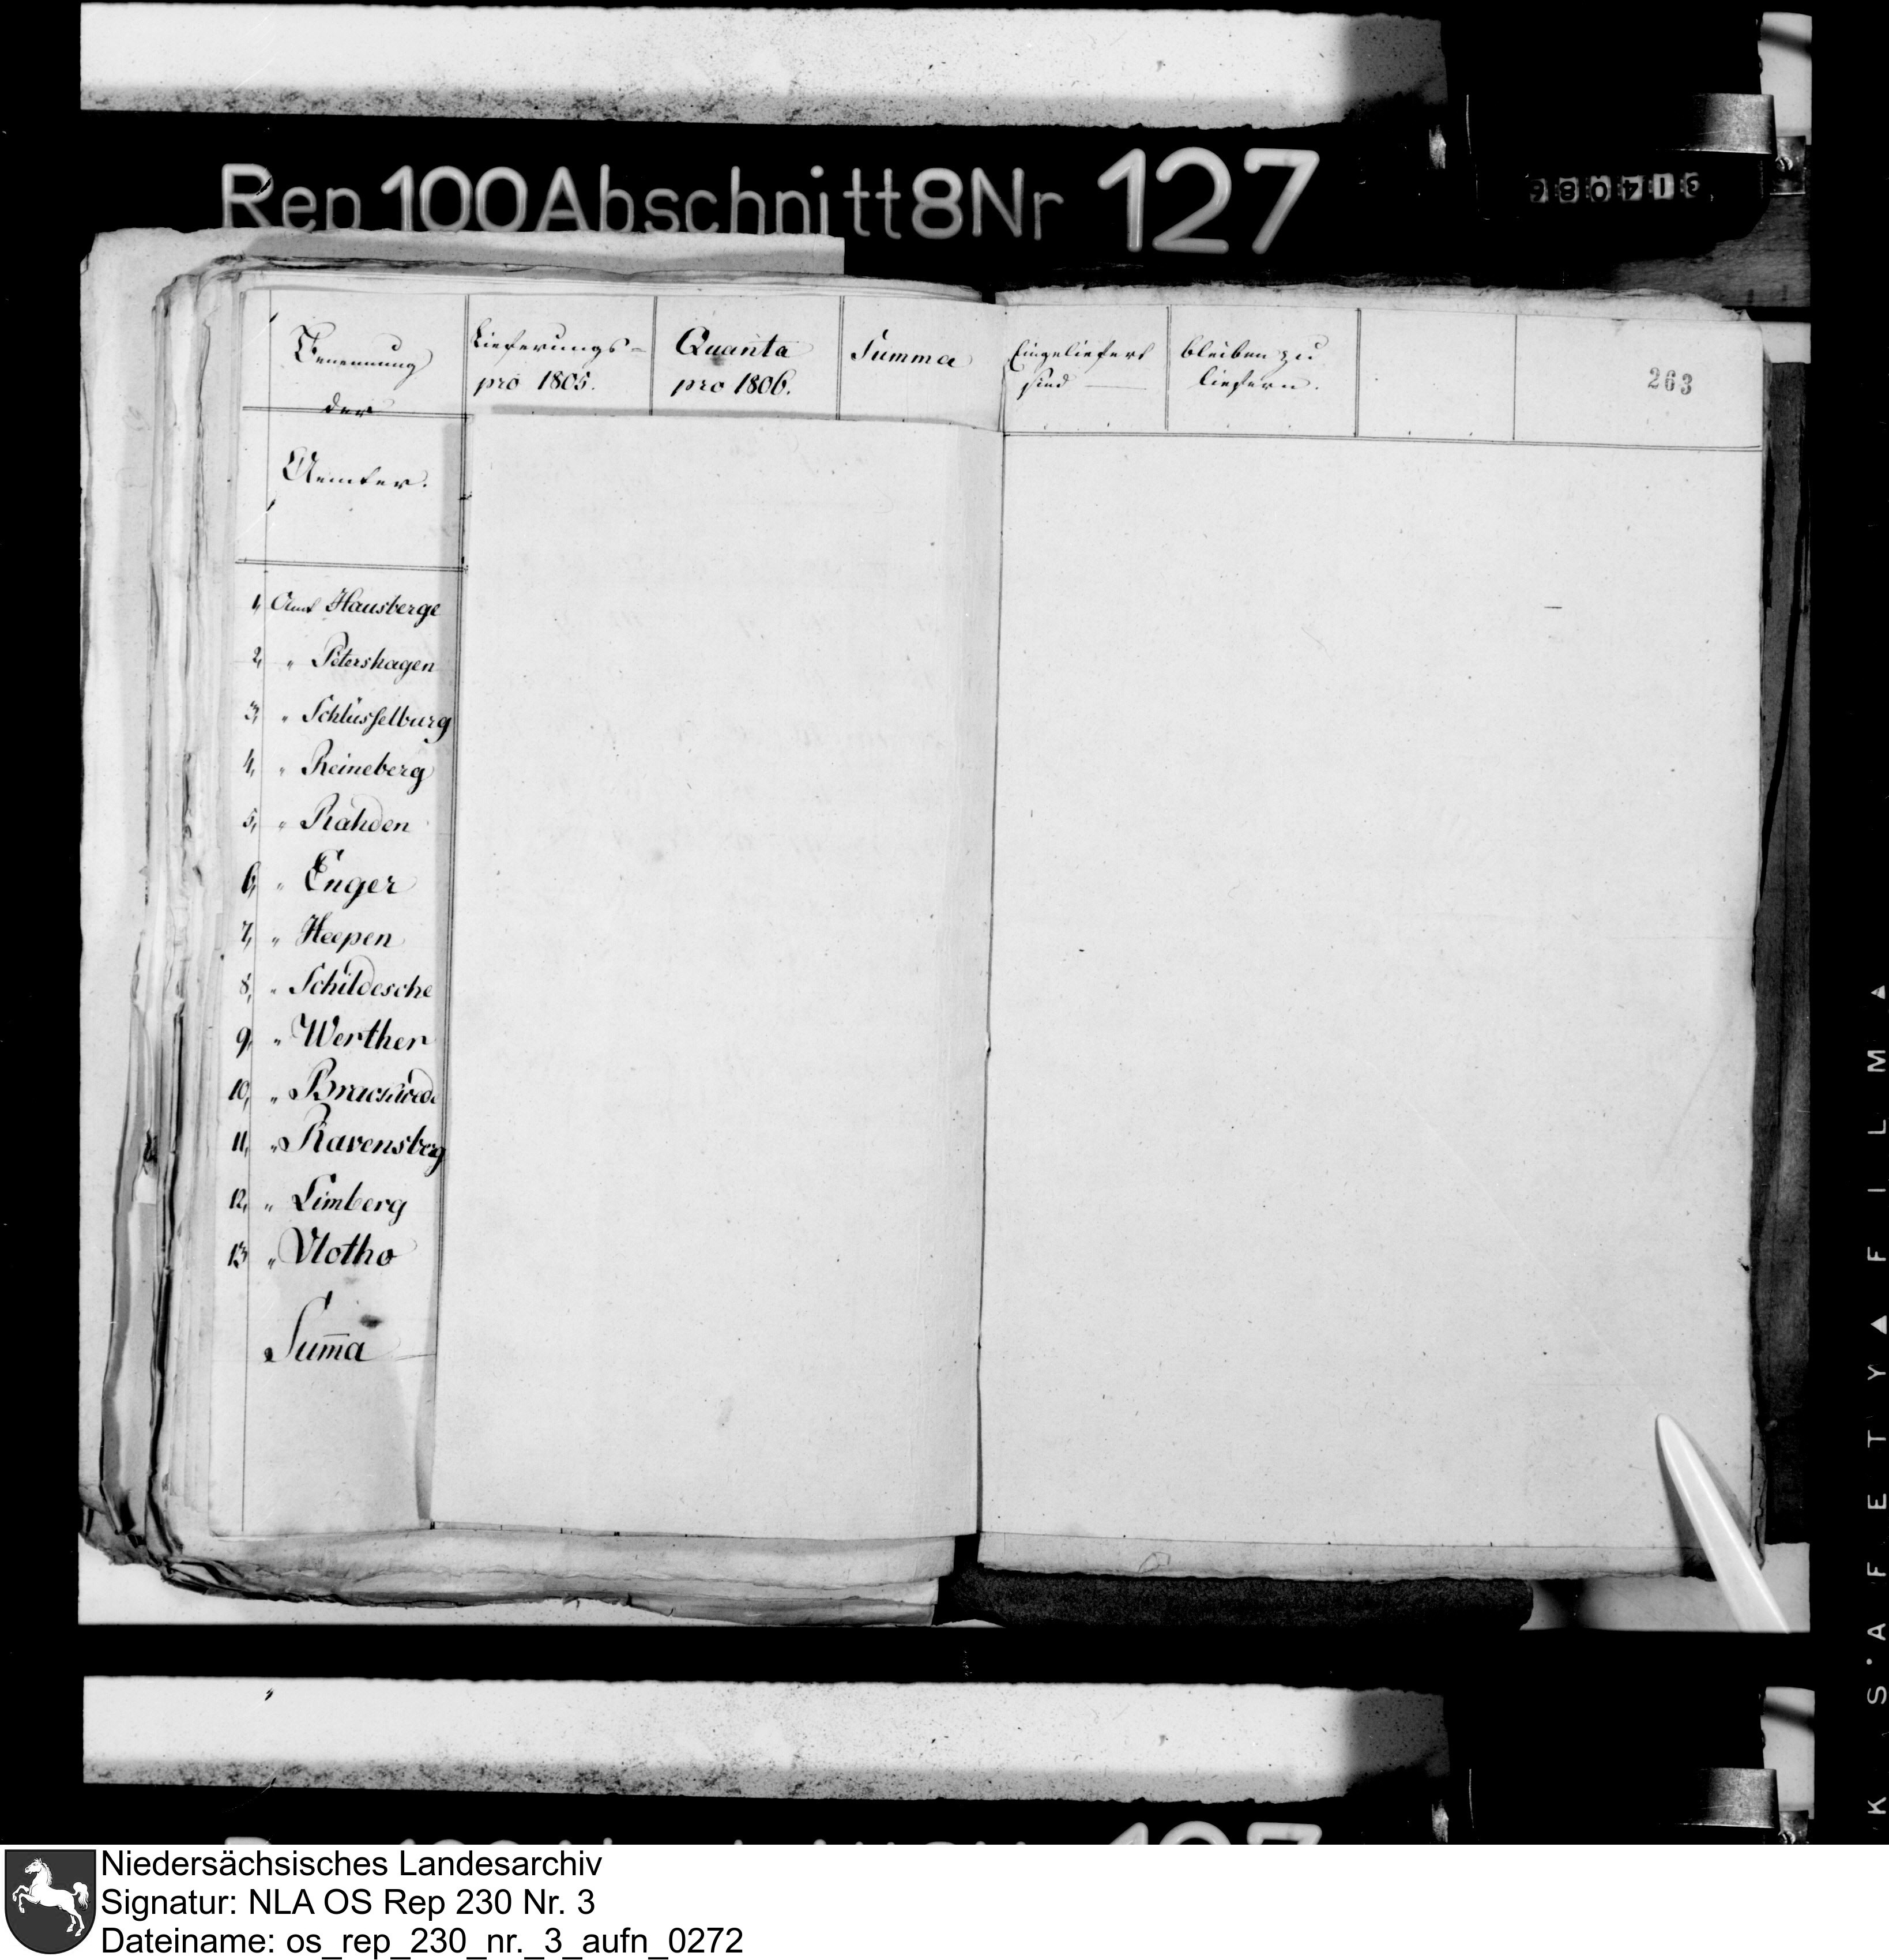 Rep 100 Abschnitt 8 Nr 127
314086
Benennung
der
Aemter.
Lieferungs-
pro 1805.
Quanta
pro 1806.
Summa
Eingeliefert
sind
bleiben zu
liefern.
263
1, Amt Hausberge
2, " Petershagen
3, " Schlüsselburg
4, " Reineberg
5, " Rahden
6, " Enger
7, " Heepen
8, " Schildesche
9, " Werther
10, " Brackwede
11, " Ravensberg
12, " Limberg
13 " Vlotho
Sum̄a
K S·A F E T Y ▲ F I L M ▲
Niedersächsisches Landesarchiv
Signatur: NLA OS Rep 230 Nr. 3
Dateiname: os_rep_230_nr._3_aufn_0272